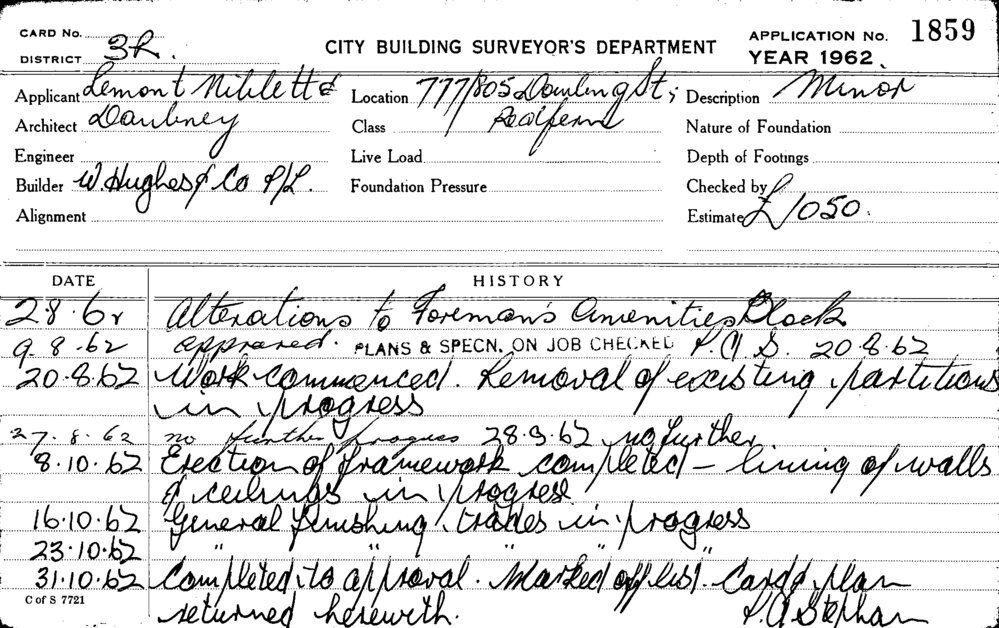 CARD No.
CITY BUILDING SURVEYOR'S DEPARTMENT
APPLICATION No. 1859
DISTRICT 3R.
YEAR 1962.
Applicant Lemont Niblett &
Location 777/805 Dowling St;
Description Minor
Architect Daubney
Class Redfern
Nature of Foundation
Engineer
Live Load
Depth of Footings
Builder W. Hughes & Co P/L.
Foundation Pressure
Checked by
Alignment
Estimate £1050.
DATE HISTORY
2.8.62 Alterations to Foreman's Amenities Block
9.8.62 approved. PLANS & SPECN. ON JOB CHECKED P.A.S. 20.8.62
20.8.62 Work commenced. Removal of existing partitions
in progress
27.8.62 no further progress 28.9.62 no further.
8.10.62 Erection of framework completed – lining of walls
& ceilings in progress
16.10.62 General finishing trades in progress
23.10.62 " " " "
31.10.62 Completed to approval. Marked off list. Card & plan
returned herewith. P.A Stephan
C of S 7721